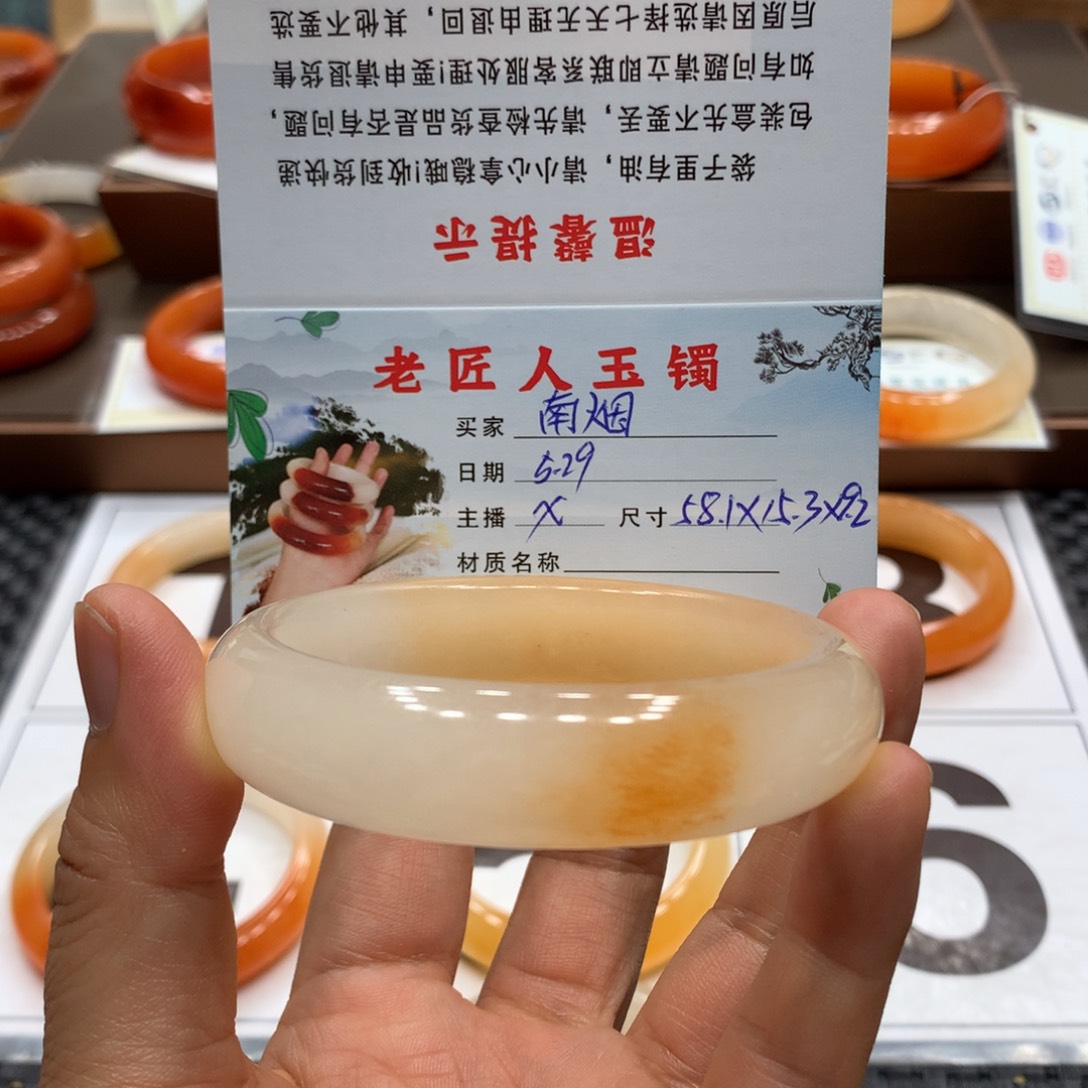 温馨提示
袋子里有油，请小心拿稳哦!收到货快递
包装盒先不要丢，请先检查货品是否有问题，
如有问题请立即联系客服处理!要申请退货售
后原因请选择七天无理由退回，其他不要选
老匠人玉镯
买家 南烟
日期 5.29
主播 X 尺寸 58.1X15.3X9.2
材质名称
3
6